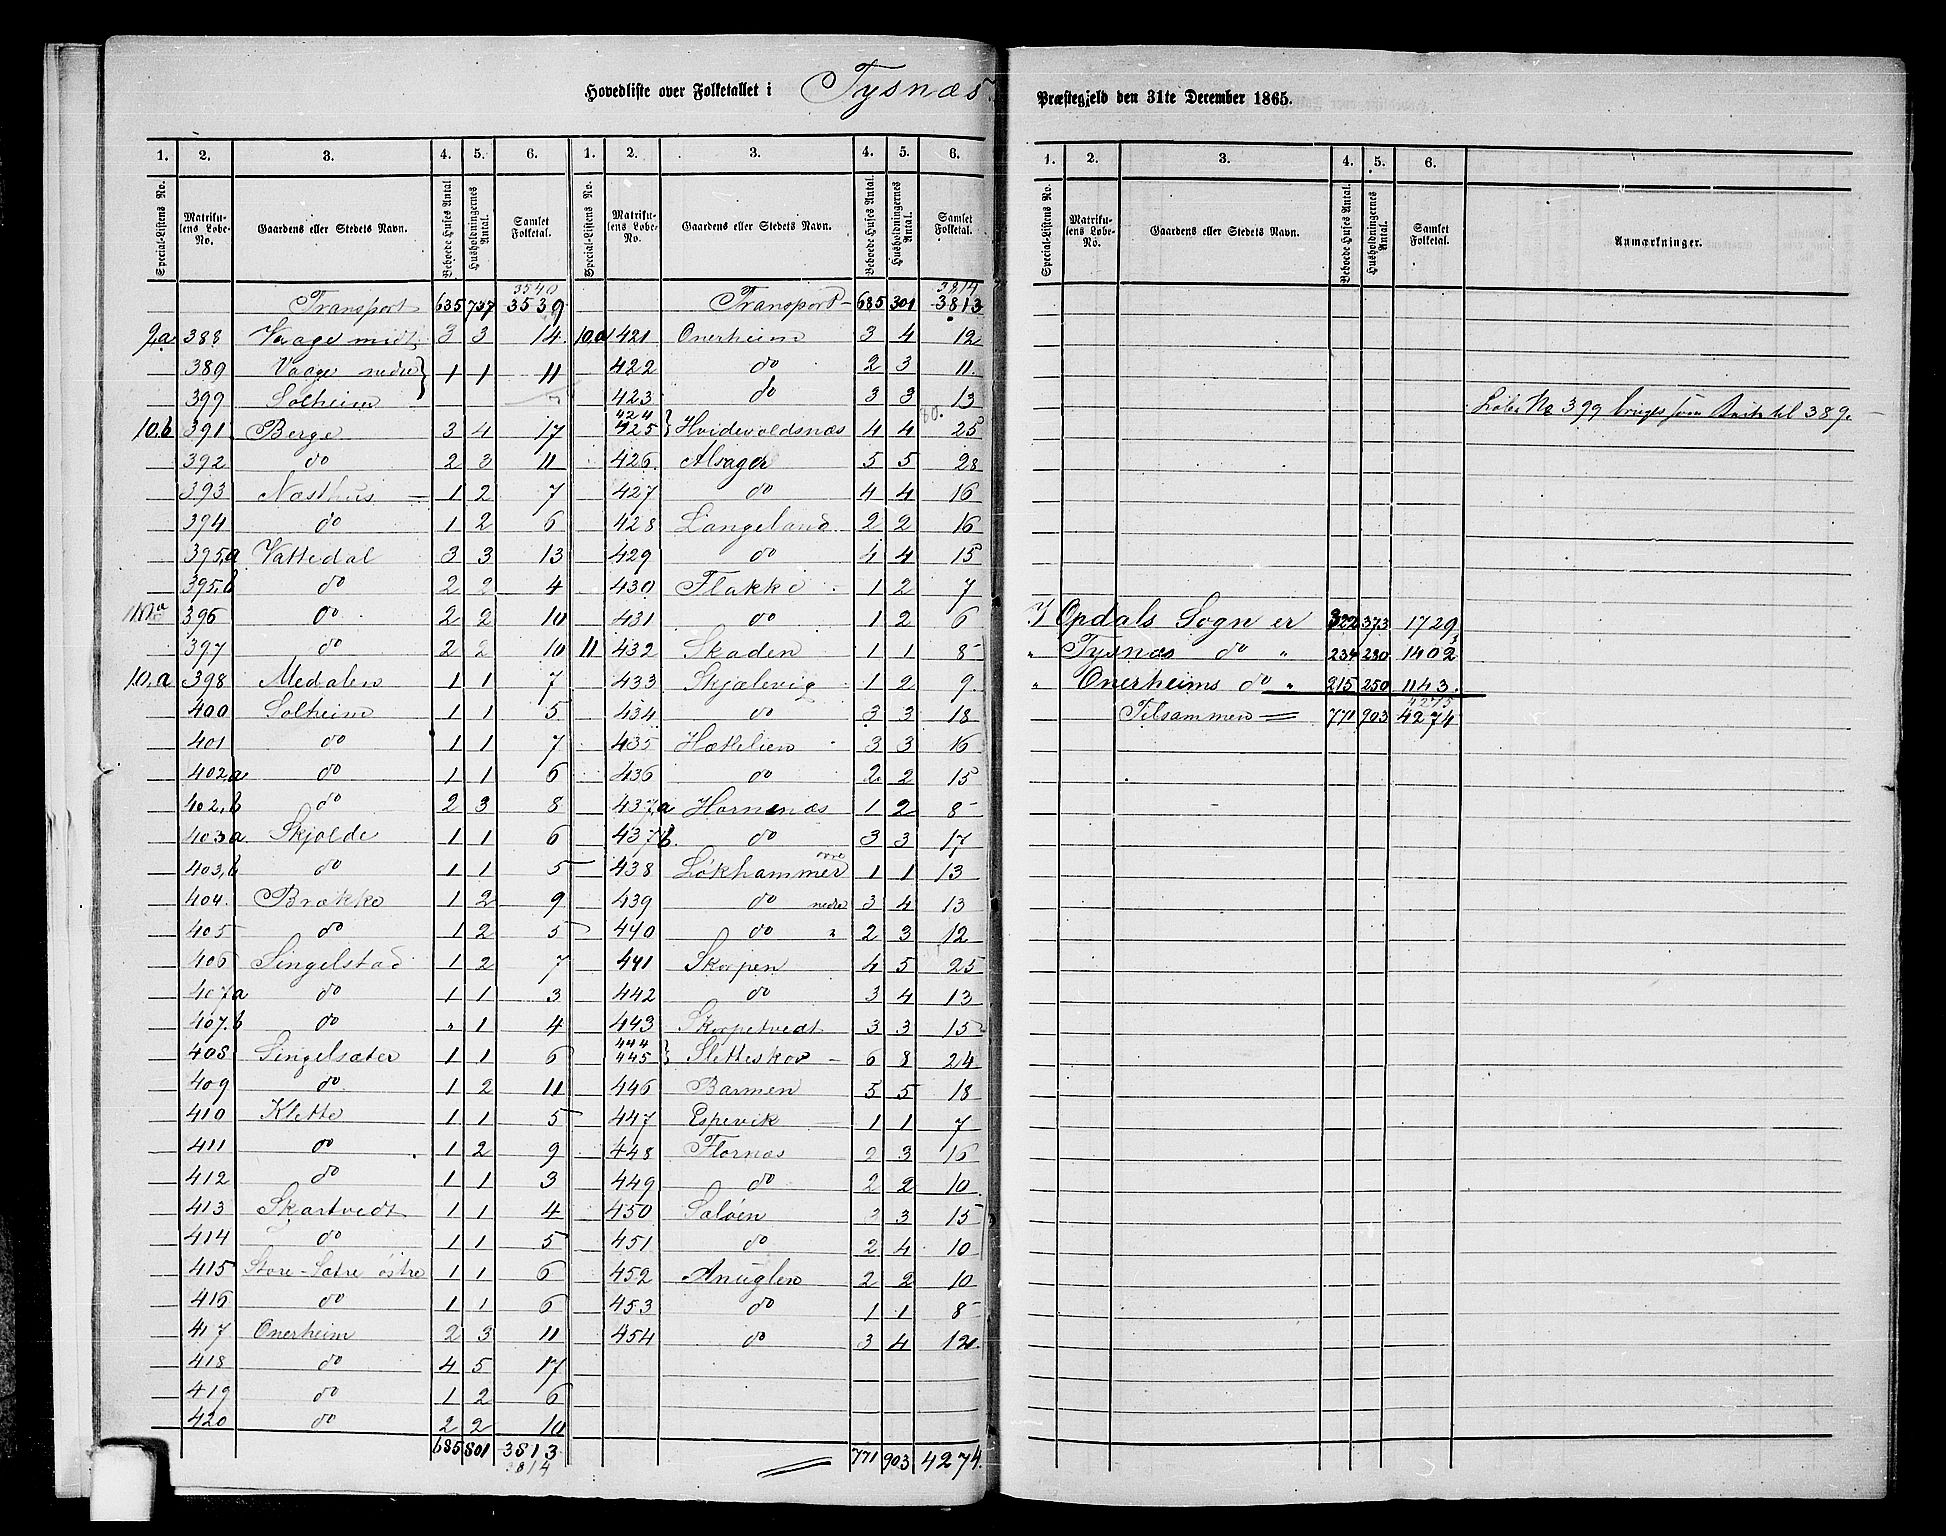 Hovedliste over Folketallet i Tysnæs Præstegjeld den 31te December 1865.
1. 2. 3. 4. 5. 6. 1. 2. 3. 4. 5. 6.
Special-Listens No. Matrikulens Løbe-No. Gaardens eller Stedets Navn. Beboede Huses Antal. Husholdningernes Antal. Samlet Folketal. Special-Listens No. Matrikulens Løbe-No. Gaardens eller Stedets Navn. Beboede Huses Antal. Husholdningernes Antal. Samlet Folketal.
3540
Transport 635 737 3539
9,a 388 Vaage midt 3 3 14
389 Vaage nedre } 1 1 11
399 Solheim
10.b 391 Berge 3 4 17
392 do 2 3 11
393 Næsthus 1 2 7
394 do 1 2 6
395,a Vattedal 3 3 13
395,b do 2 2 4
10a 396 do 2 2 10
397 do 2 2 10
10.a 398 Medalen 1 1 7
400 Solheim 1 1 5
401 do 1 1 7
402,a do 1 1 6
402,b do 2 3 8
403a Skjolde 1 1 6
403,b do 1 1 5
404. Brække 1 2 9
405 do 1 2 5
406 Singelstad 1 2 7
407a do 1 1 3
407.b do " 1 4
408 Singelsæter 1 1 6
409 do 1 2 11
410 Klette 1 1 5
411 do 1 2 9
412 do 1 1 3
413 Skartvedt 1 1 4
414 do 1 1 5
415 Store-Sætre östre 1 1 6
416 do 1 1 6
417 Onerheim 2 3 11
418 do 4 5 17
419 do 1 2 6
420 do 2 2 10
685 801 3813
3814
3814
Transport 685 301 3813
10.a 421 Onerheim 3 4 12
422 do 2 3 11
423 do 3 3 13
424
425 } Hvidevoldsnæs 4 4 25
426 Alsager 5 5 28
427 do 4 4 16
428 Langeland 2 2 16
429 do 4 4 15
430 Flakke 1 2 7
431 do 1 2 6
11 432 Skaden 1 1 8
433 Skjælevig 1 2 9
434 do 3 3 18
435 Hætlelien 3 3 16
436 do 2 2 15
437,a Hornenæs 1 2 8
437b. do 3 3 17
438 Lökhammer övre 1 1 13
439 do nedre 3 4 13
440 do " 2 3 12
441 Skorpen 4 5 25
442 do 3 4 13
443 Skorpetvedt 3 3 15
444
445 } Sletteskov 6 8 24
446 Barmen 5 5 18
447 Espevik 1 1 7
448 Flornæs 2 3 16
449 do 2 2 10
450 Salöen 3 3 15
451 do 2 4 10
452 Anuglen 2 2 10
453 do 1 1 8
454 do 3 4 12
771 903 4274.
1. 2. 3. 4. 5. 6.
Special-Listens No. Matrikulens Løbe-No. Gaardens eller Stedets Navn. Beboede Huses Antal. Husholdningernes Antal. Samlet Folketal. Anmærkninger.
Löbe No 399 bruges som til 389.
I Opdals Sogn er 322 373 1729
" Tysnæs do " 234 280 1402
" Onerheims do " 215 250 1143.
4275
Tilsammen 771 903 4274